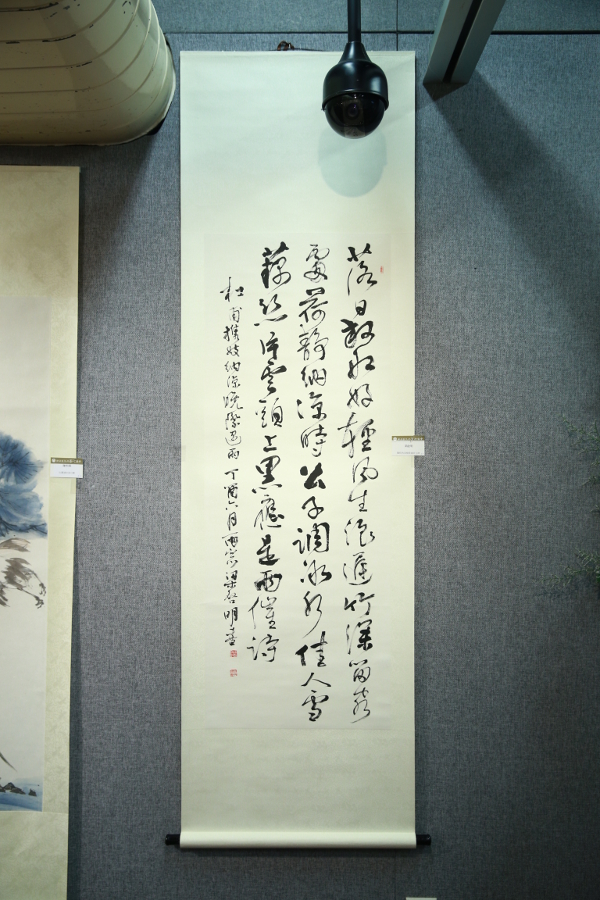 落日放船好輕風生浪遲竹深留客
處荷靜納涼時公子調冰水佳人雪
藕絲片雲頭上黑應是雨催詩
杜甫攜妓納涼晚際遇雨 丁酉六月雨窗梁啓明書